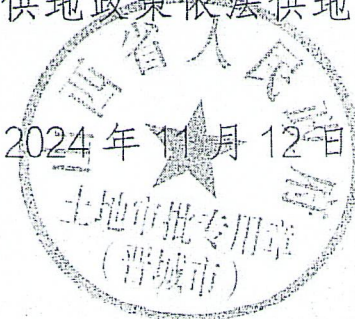 供地政策依法供地
山西省人民政府
2024年11月12日
土地审批专用章
（晋城市）